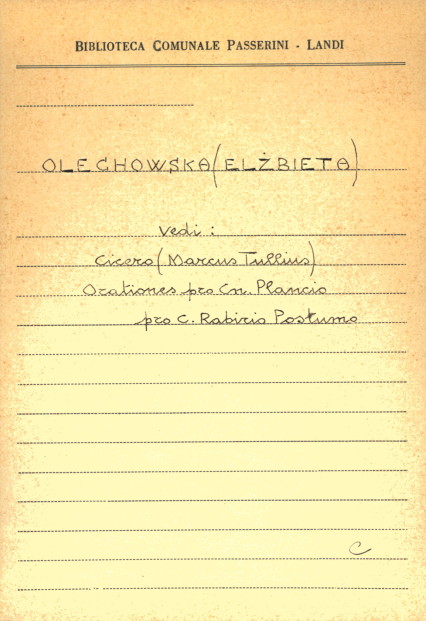 BIBLIOTECA COMUNALE PASSERINI - LANDI
OLECHOWSKA (ELŻBIETA)
Vedi :
Cicero (Marcus Tullius)
Orationes pro Cn. Plancio
pro C. Rabirio Postumo
C